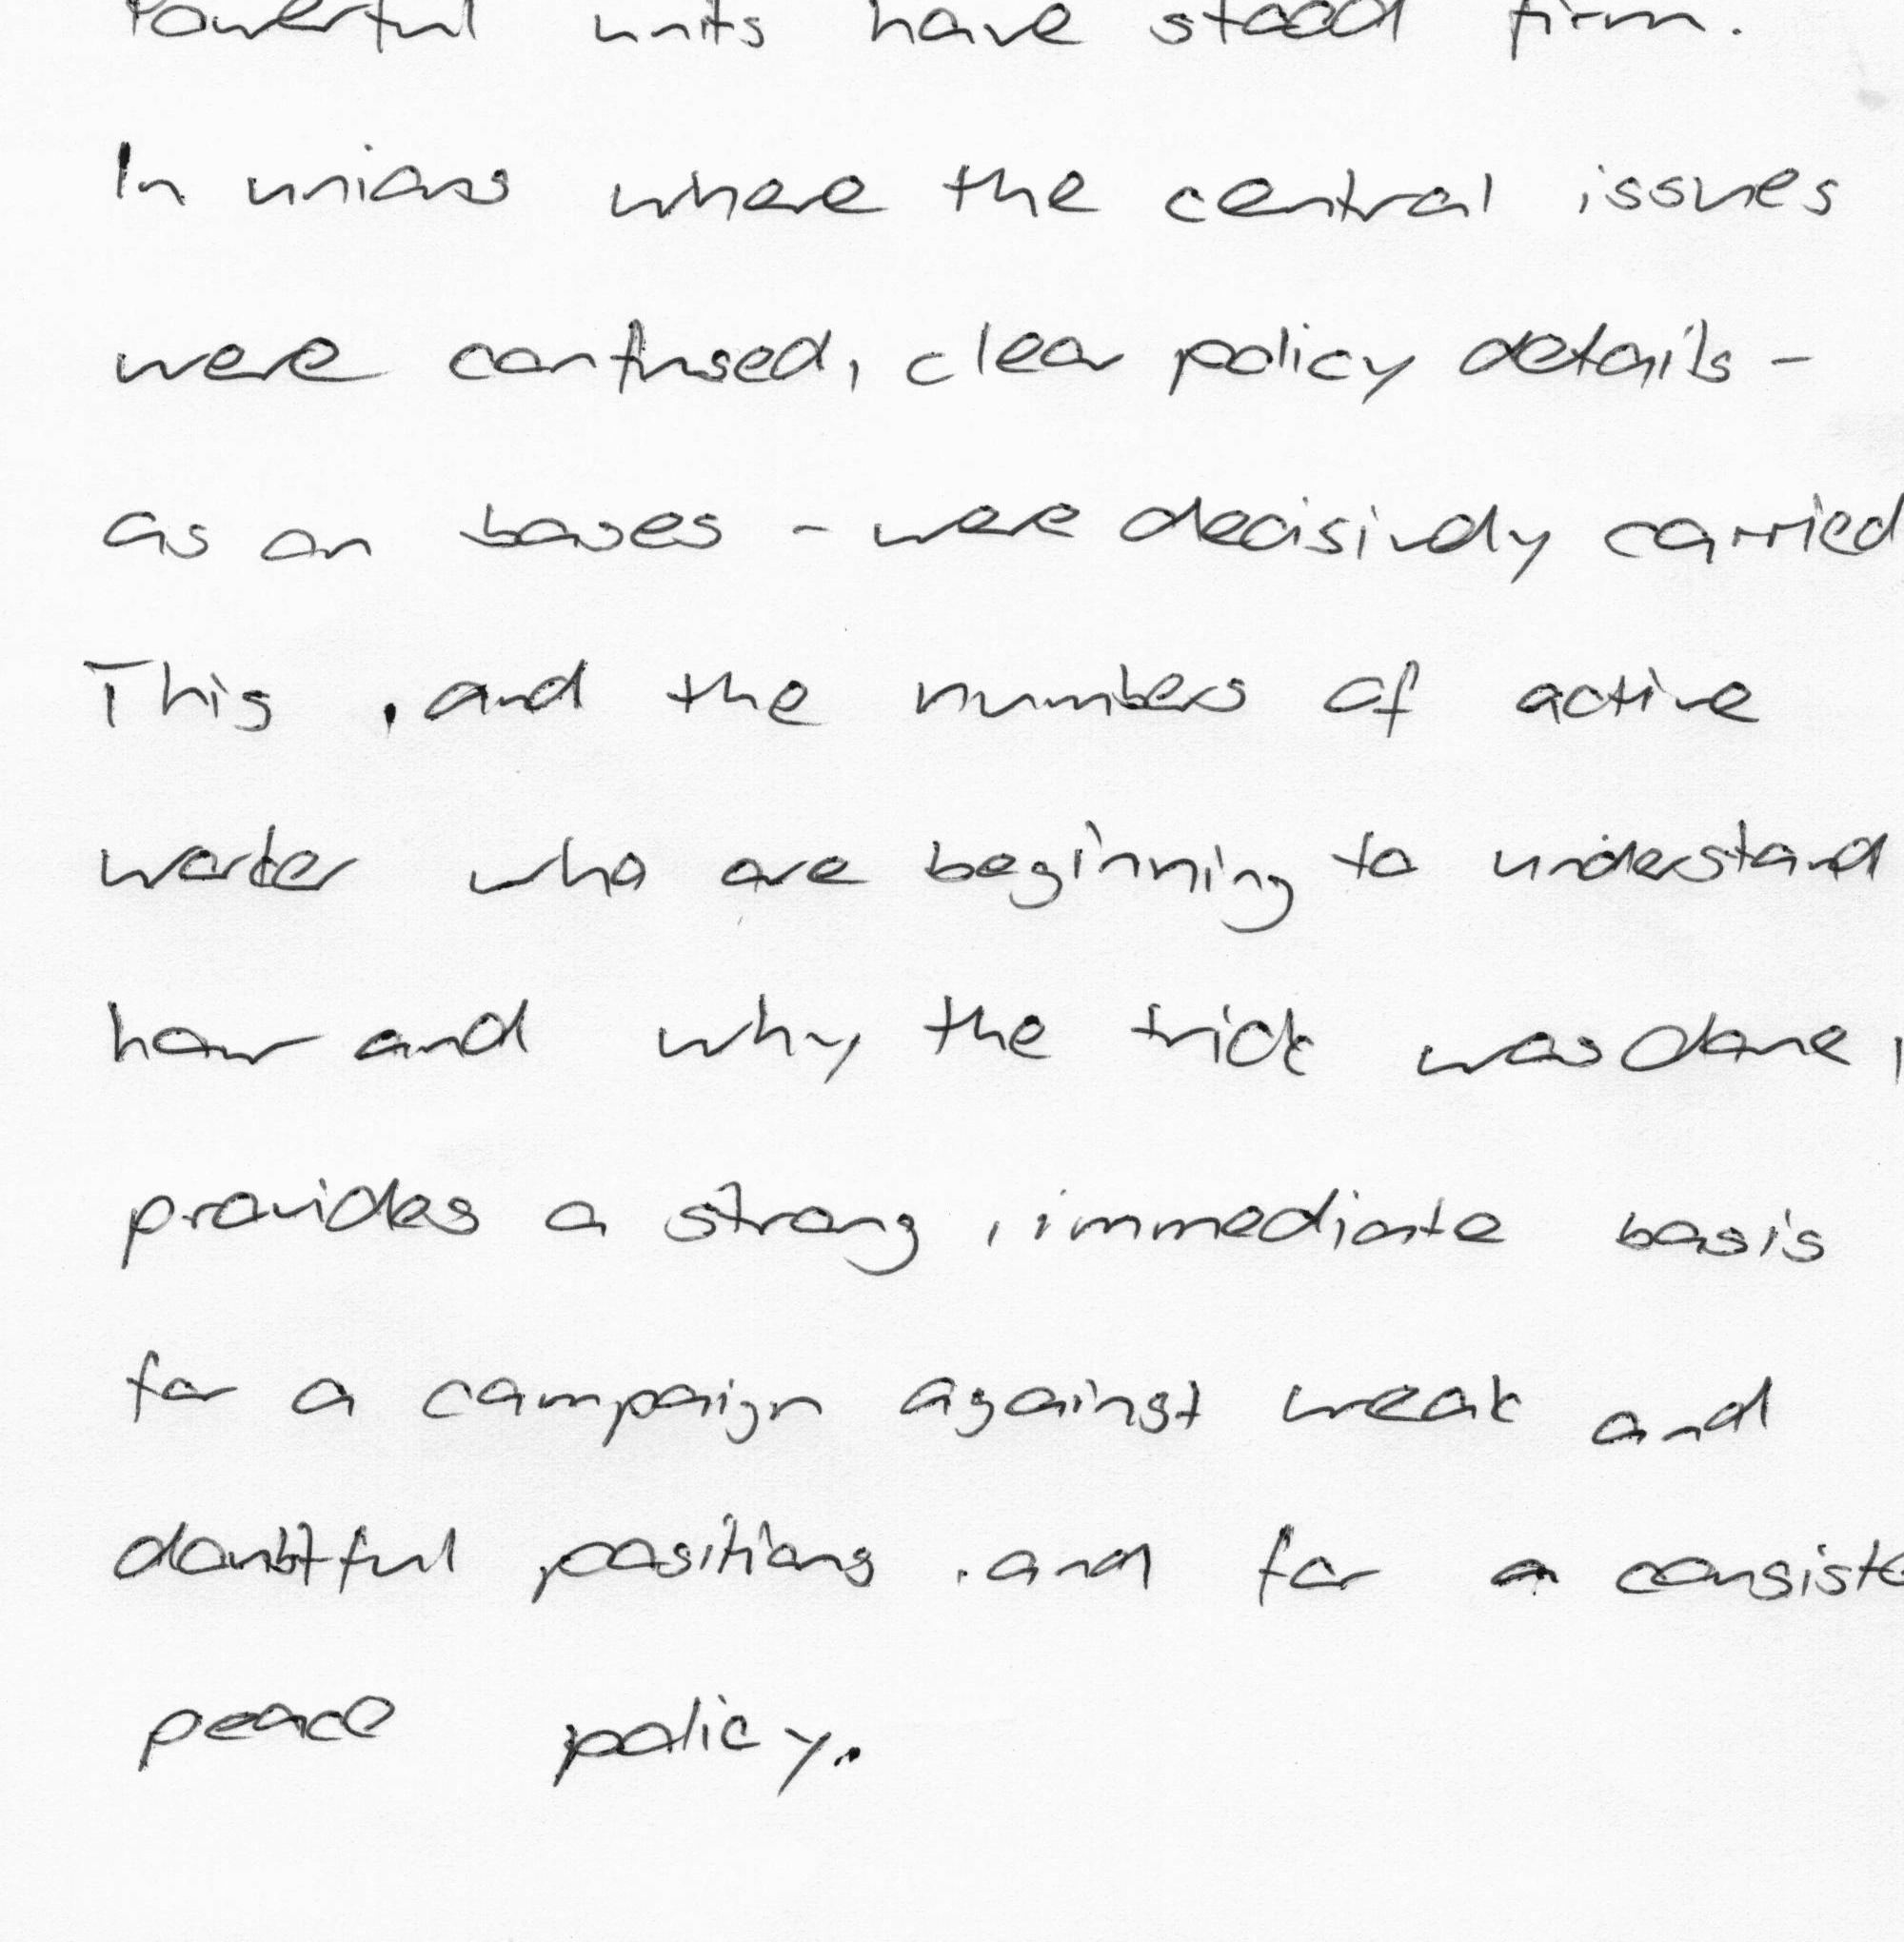 Powerful units have stood firm.
In unions where the central issues
were confused, clear policy details -
as on bases - were decisively carried
This , and the numbers of active
worker who are beginning to understand
how and why the trick was done,
provides a strong , immediate basis
for a campaign against weak and
doubtful positions , and for a consiste
peace policy.